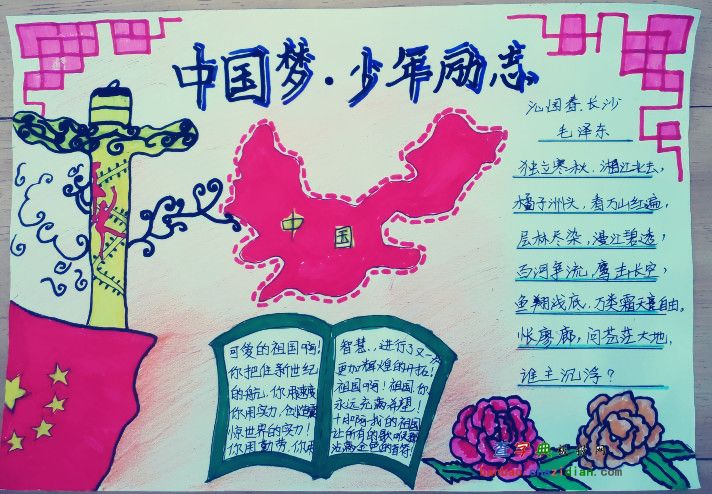 中国梦·少年励志
沁园春.长沙
毛泽东
独立寒秋，湘江北去，
橘子洲头，看万山红遍，
层林尽染，漫江碧透，
百河争流，鹰击长空，
鱼翔浅底，万类霜天竞自由。
怅廖廓，问苍茫大地，
谁主沉浮？
中国
可爱的祖国啊！
你把住新世纪
的航，你用速度
你用实力，
惊世界的实力！
你用勤劳，你用
智慧，，进行了又一次
更加辉煌的开拓！
祖国啊！祖国你
永远充满希望！
啊我的祖国
让所有的歌
金色的音符
查字典
zidian.com